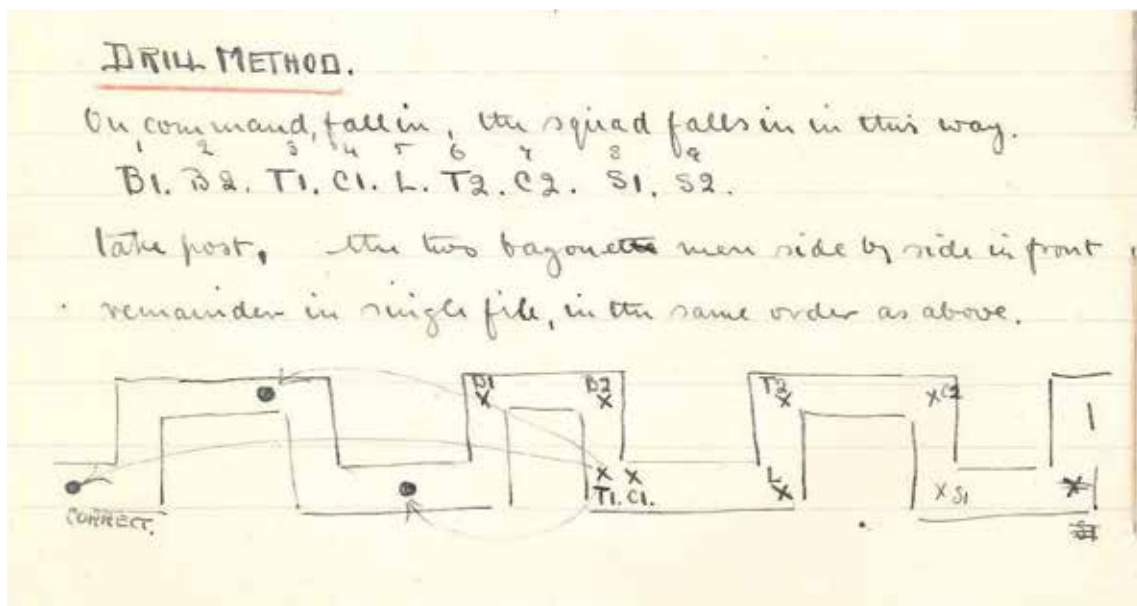 DRILL METHOD.
On command, fall in, the squad falls in in this way.
1 2 3 4 5 6 7 8 9
B1. B2. T1. C1. L. T2. C2. S1. S2.
take post, the two bayonette men side by side in front,
remainder in single file, in the same order as above.
B1 B2 T2 C2
T1. C1. L S1
CORRECT.